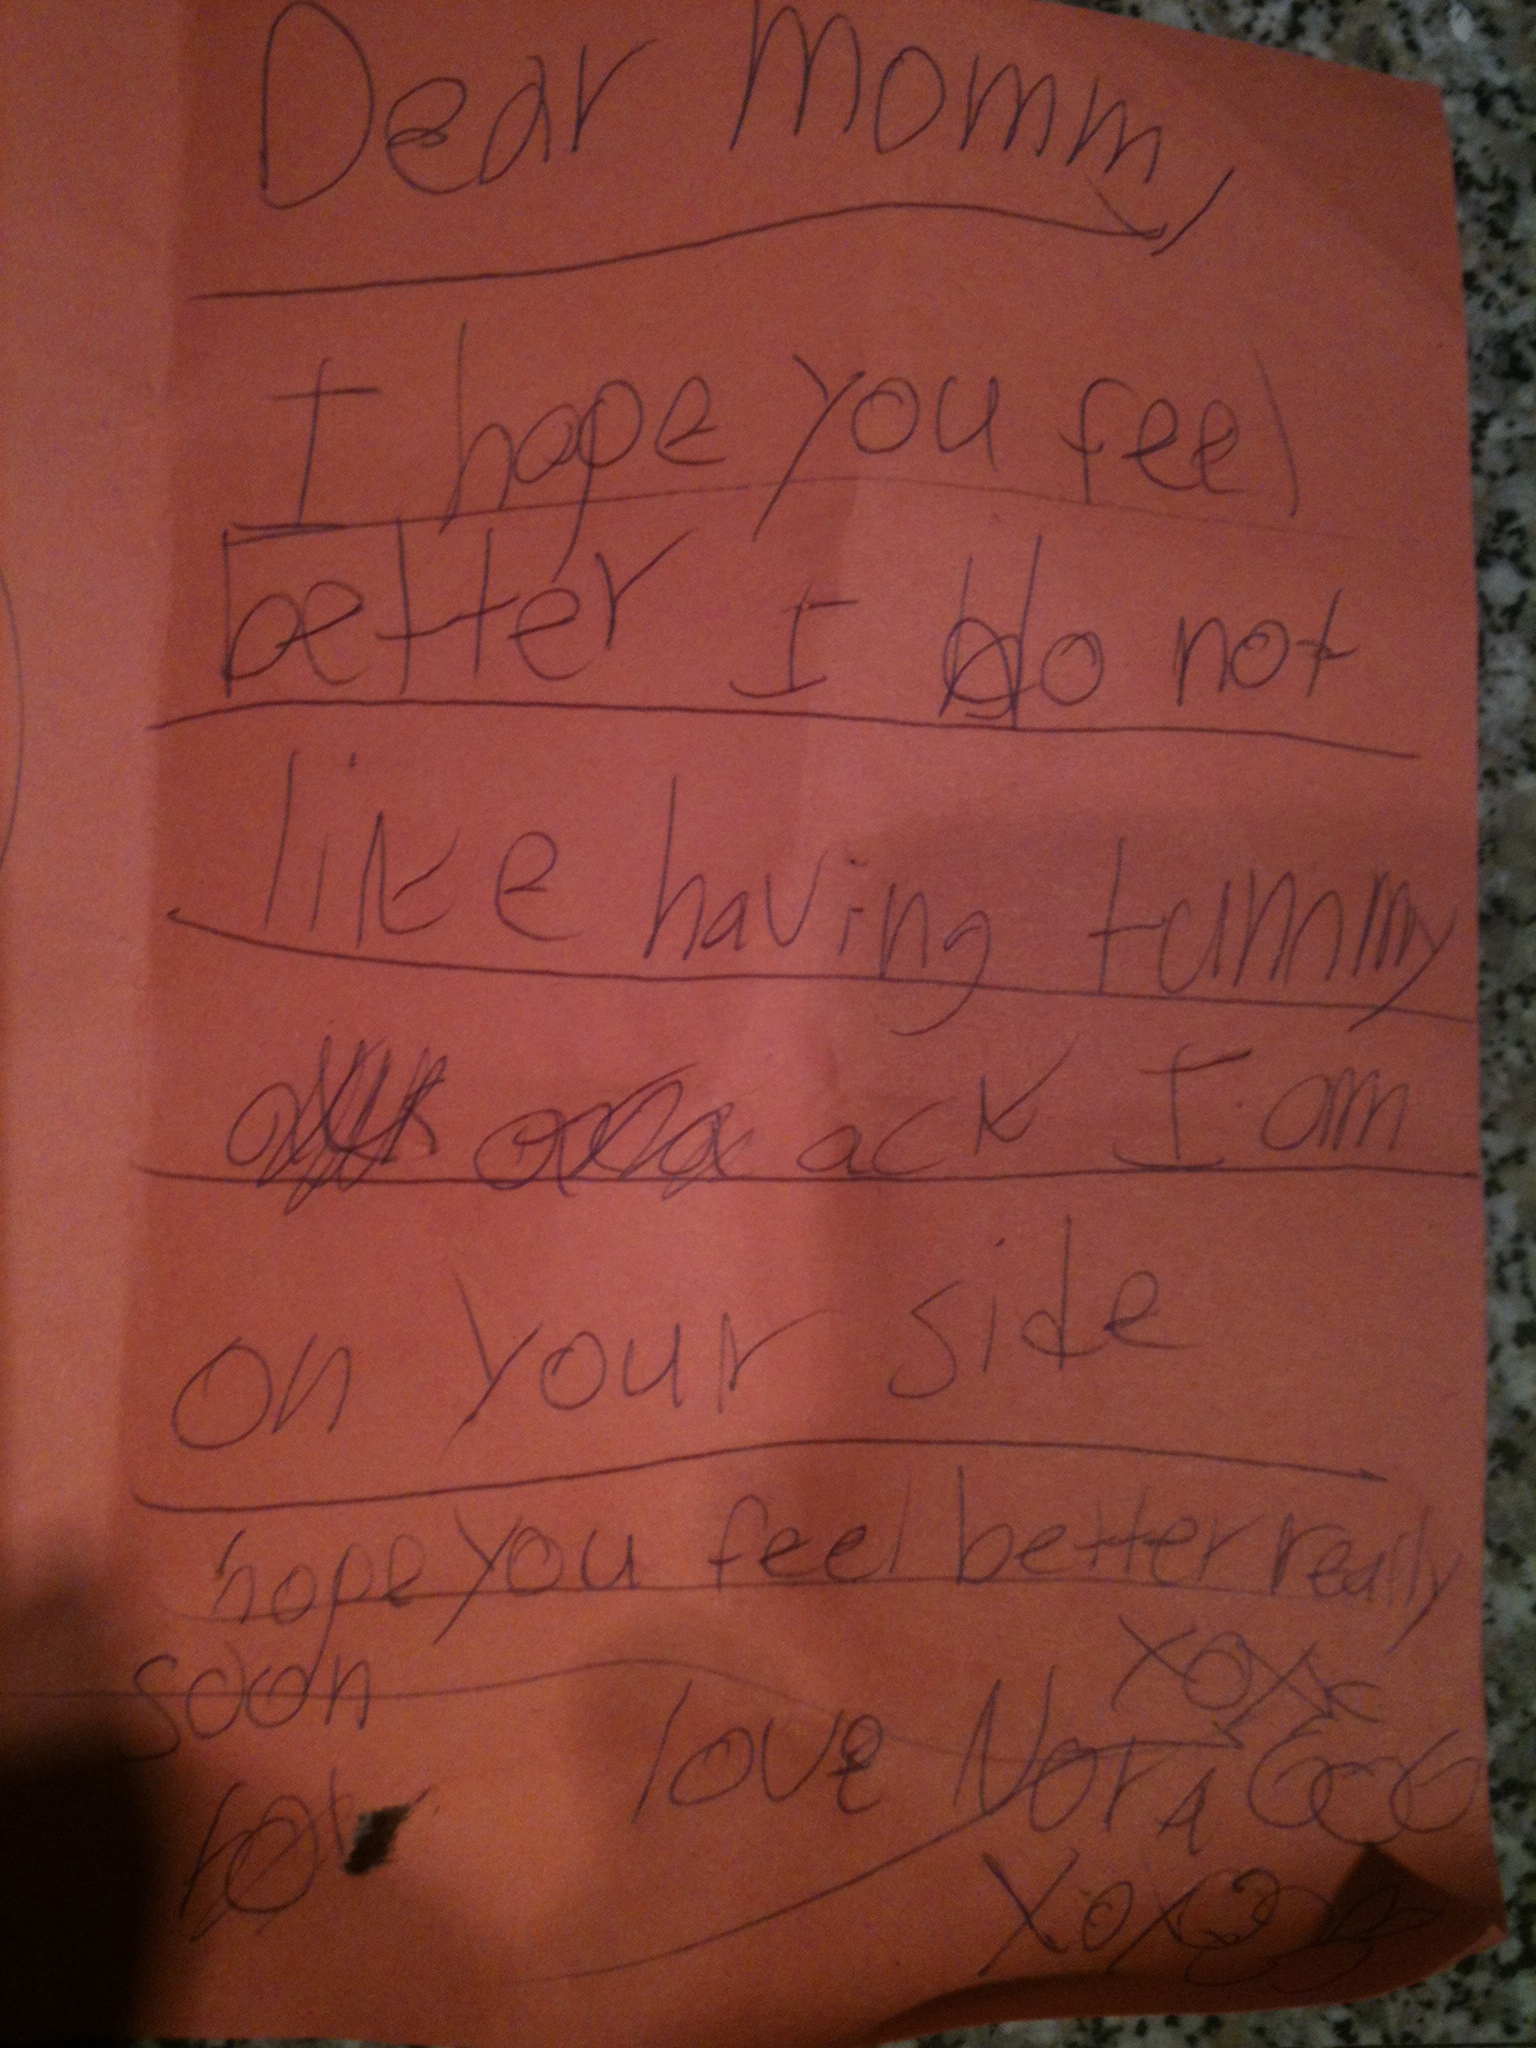 Dear Mommy,
I hope you feel
better I do not
like having tummy
ack I am
on your side
hope you feel better really
soon
love Nora
xox
xox